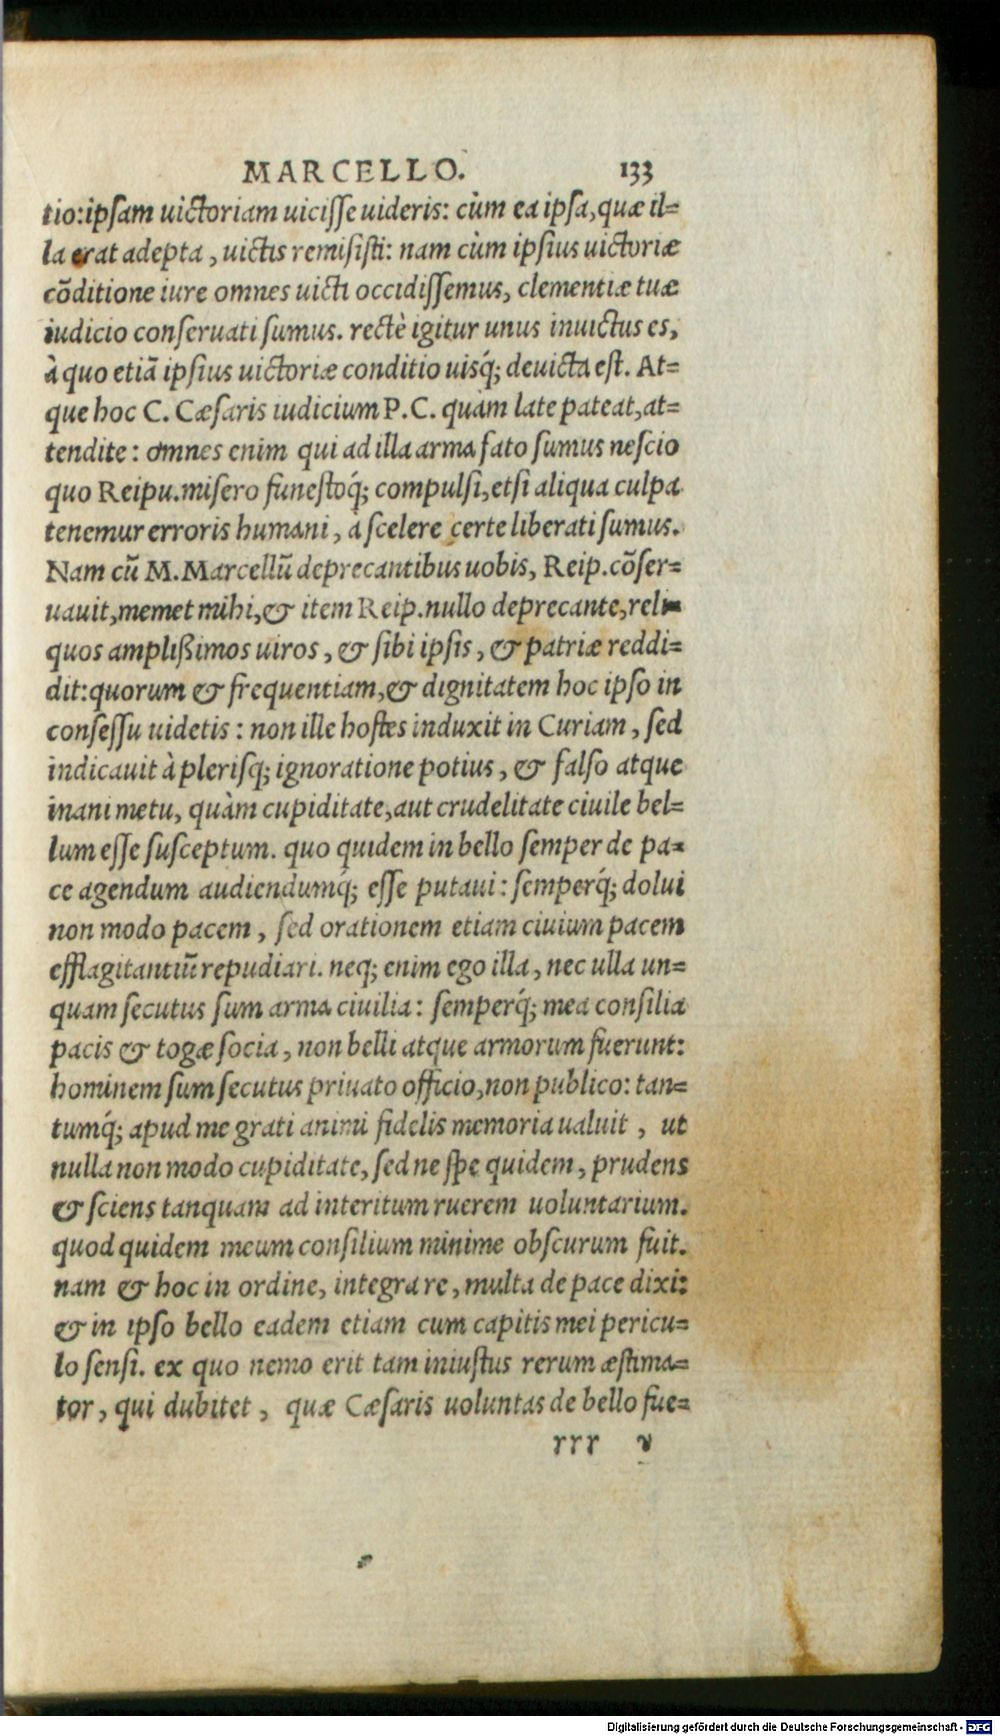 MARCELLO. 133
tio: ipsam uictoriam uicisse uideris: cùm ea ipsa, quæ il=
la erat adepta, uictis remisisti: nam cùm ipsius uictoriæ
cōditione iure omnes uicti occidissemus, clementiæ tuæ
iudicio conseruati sumus. rectè igitur unus inuictus es,
à quo etiā ipsius uictoriæ conditio uisq́; deuicta est. At=
que hoc C. Cæsaris iudicium P. C. quàm late pateat, at=
tendite: omnes enim qui ad illa arma fato sumus nescio
quo Reipu. misero funestoq́; compulsi, etsi aliqua culpa
tenemur erroris humani, à scelere certe liberati sumus.
Nam cū M. Marcellū deprecantibus uobis, Reip. cōser=
uauit, memet mihi, & item Reip. nullo deprecante, reli=
quos amplißimos uiros, & sibi ipsis, & patriæ reddi=
dit: quorum & frequentiam, & dignitatem hoc ipso in
consessu uidetis: non ille hostes induxit in Curiam, sed
indicauit à plerisq; ignoratione potius, & falso atque
inani metu, quàm cupiditate, aut crudelitate ciuile bel=
lum esse susceptum. quo quidem in bello semper de pa=
ce agendum audiendumq́; esse putaui: semperq́; dolui
non modo pacem, sed orationem etiam ciuium pacem
efflagitantiū repudiari. neq; enim ego illa, nec ulla un=
quam secutus sum arma ciuilia: semperq́; mea consilia
pacis & togæ socia, non belli atque armorum fuerunt:
hominem sum secutus priuato officio, non publico: tan=
tumq́; apud me grati animi fidelis memoria ualuit, ut
nulla non modo cupiditate, sed ne spe quidem, prudens
& sciens tanquam ad interitum ruerem uoluntarium.
quod quidem meum consilium minime obscurum fuit.
nam & hoc in ordine, integra re, multa de pace dixi:
& in ipso bello eadem etiam cum capitis mei pericu=
lo sensi. ex quo nemo erit tam iniustus rerum æstima=
tor, qui dubitet, quæ Cæsaris uoluntas de bello fue=
rrr v
Digitalisierung gefördert durch die Deutsche Forschungsgemeinschaft - DFG